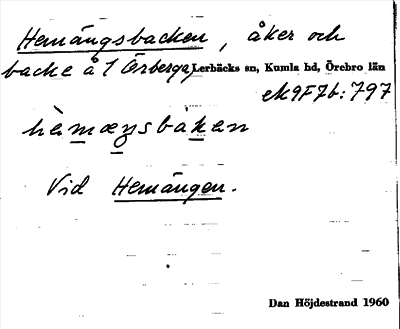 Hemängsbacken, åker och
backe å 1 Örberga, Lerbäcks sn, Kumla hd, Örebro län
ek 9F7b:797
hèmæŋsbáken
Vid Hemängen.
Dan Höjdestrand 1960